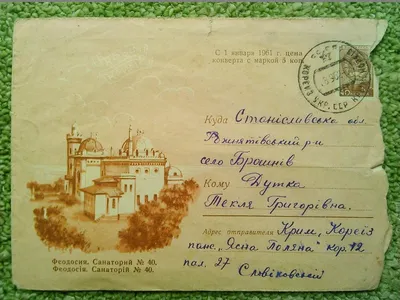 С 1 января 1961 г. цена
конверта с маркой 5 коп.
КОРЕИЗ УКР. ССР
Куда Станіславська обл.
Рожнятівський р-н
село Брошнів
Кому Дутка
Текля Григорівна.
Адрес отправителя Крим, Кореїз
панс. „Ясна Поляна" кор. 12
пал. 27 Словіковській
Феодосия. Санаторий № 40.
Феодосія. Санаторій № 40.